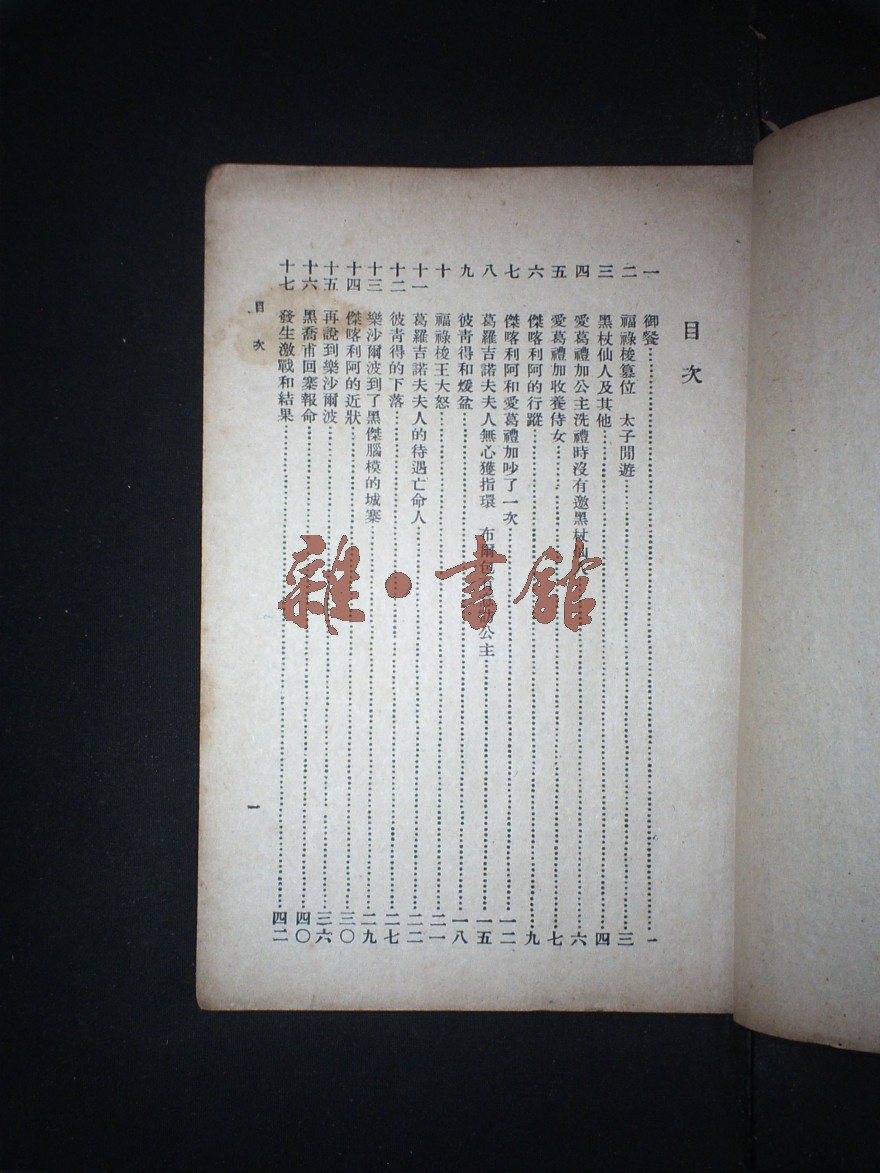 目次
一 御餐 一
二 福祿棱篡位 太子閒遊 三
三 黑杖仙人及其他 四
四 愛葛禮加公主洗禮時沒有邀黑杖仙 六
五 愛葛禮加收養侍女 七
六 傑喀利阿的行蹤 九
七 傑喀利阿和愛葛禮加吵了一次 一二
八 葛羅吉諾夫夫人無心獲指環 布爾包 公主 一五
九 彼青得和煖盆 一八
十 福祿棱王大怒 二一
十一 葛羅吉諾夫夫人的待遇亡命人 二二
十二 彼青得的下落 二七
十三 樂沙爾波到了黑傑腦模的城寨 二九
十四 傑喀利阿的近狀 三〇
十五 再說到樂沙爾波 三六
十六 黑喬甫回寨報命 四〇
十七 發生激戰和結果 四二
目次
一
雜·書館